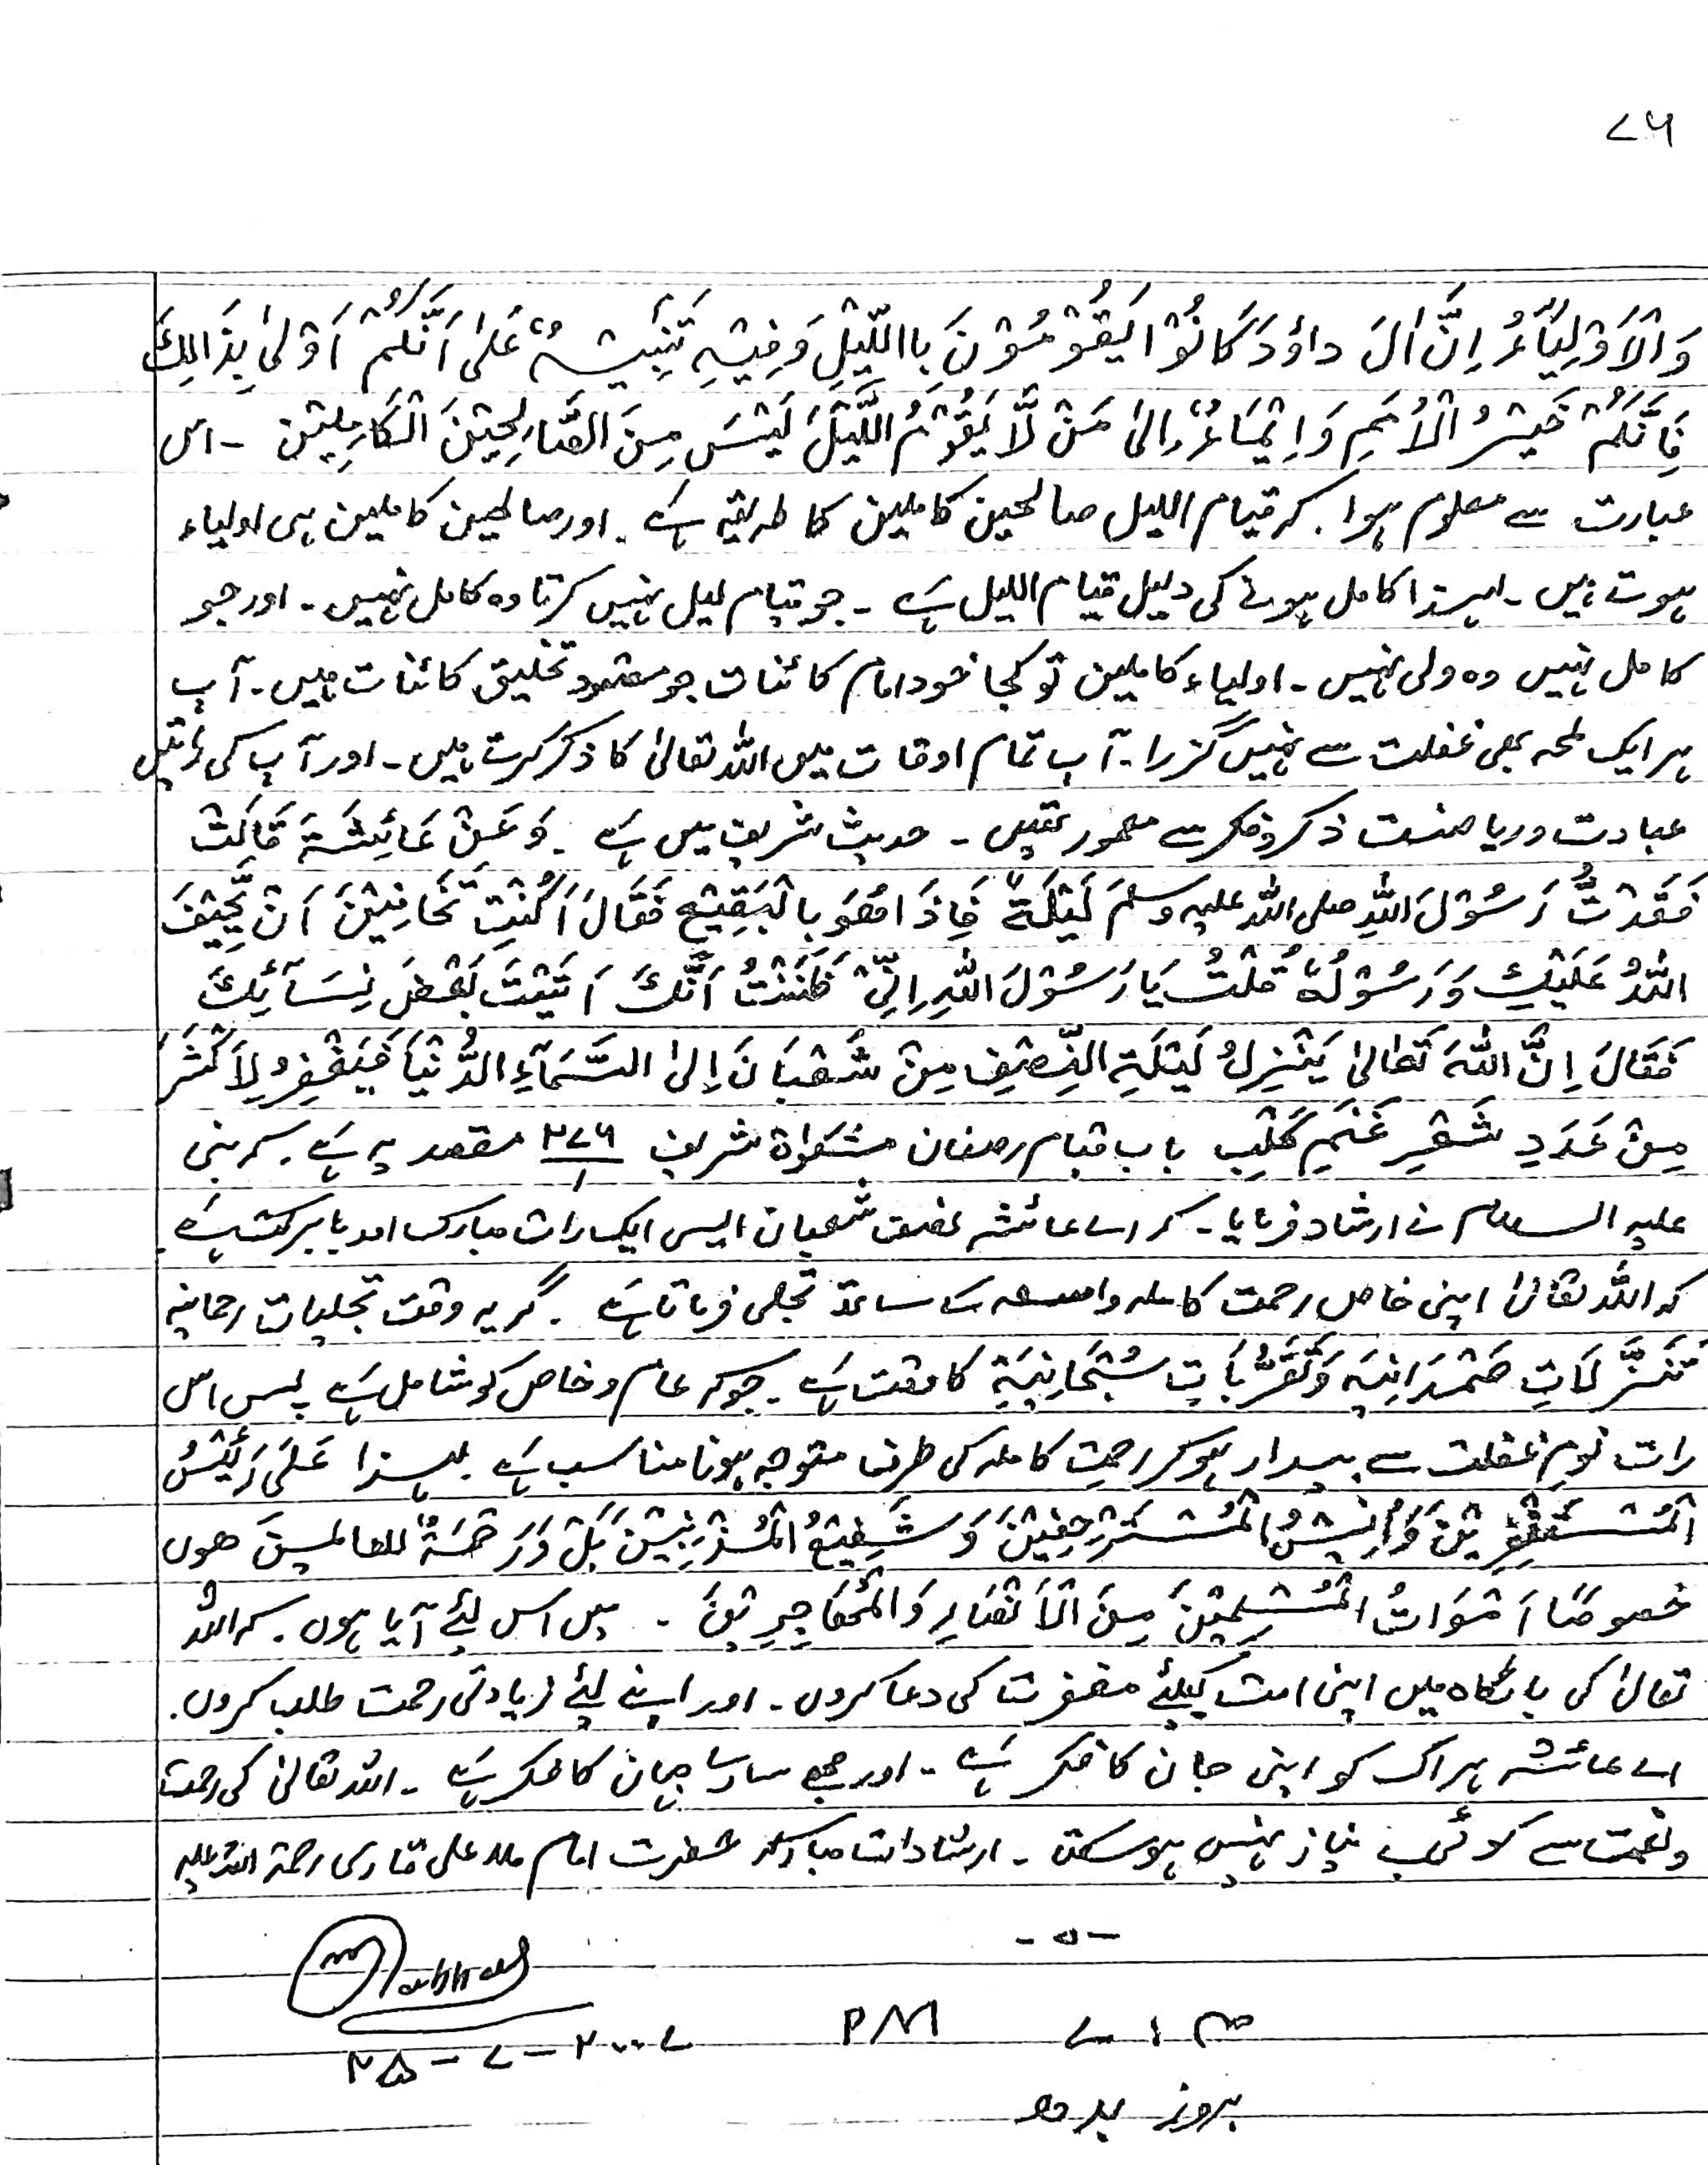 ۷۶
وَالْاَوْلِيَآءُ اِنَّ اٰلَ داؤدَ كَانُوْا يَقُوْمُوْنَ بِااللَّيْلِ وَفِيْهِ تَنْبِيْهٌ عَلىٰ اَنَّكُمْ اَوْلىٰ بِذَالِكَ
فَاِنَّكُمْ خَيْرُ الْاُمَمِ وَاِيْمَاءٌ اِلىٰ مَنْ لَّا يَقُوْمُ اللَّيْلَ لَيْسَ مِنَ الصَّالِحِيْنَ الْكَامِلِيْن ۔ اس
عبارت سے معلوم ہوا ۔ کہ قیام اللیل صالحین کاملین کا طریقہ ہے ۔ اور صالحین کاملین ہی اولیاء
ہوتے ہیں ۔ لہٰذا کامل ہونے کی دلیل قیام اللیل ہے ۔ جو قیام لیل نہیں کرتا وہ کامل نہیں ۔ اور جو
کامل نہیں وہ ولی نہیں ۔ اولیاء کاملین تو کجا خود امام کائنات جو مقصود تخلیق کائنات ہیں ۔ آپ
پر ایک لمحہ بھی غفلت سے نہیں گزرا ۔ آپ تمام اوقات میں اللہ تعالیٰ کا ذکر کرتے ہیں ۔ اور آپ کی راتیں
عبادت و ریاضت ذکر و فکر سے معمور تھیں ۔ حدیث شریف میں ہے ۔ وَعَنْ عَائِشَةَ قَالَتْ
فَقَدْتُّ رَسُوْلَ اللهِ صلى الله عليه وسلم لَيْلَةً فَاِذَا هُوَ بِالْبَقِيْعِ فَقَالَ اَكُنْتِ تَخَافِيْنَ اَنْ يَّحِيْفَ
اللهُ عَلَيْكِ وَرَسُوْلُهٗ قُلْتُ يَا رَسُوْلَ اللهِ اِنِّيْ ظَنَنْتُ اَنَّكَ اَتَيْتَ بَعْضَ نِسَآئِكَ
فَقَالَ اِنَّ اللهَ تَعَالىٰ يَنْزِلُ لَيْلَةَ النِّصْفِ مِنْ شَعْبَانَ اِلىٰ السَّمَآءِ الدُّنْيَا فَيَغْفِرُ لِاَكْثَرَ
مِنْ عَدَدِ شَعْرِ غَنَمِ كَلْبٍ باب قیام رمضان مشکواۃ شریف ۲۷۶/۱ مقصد یہ ہے ۔ کہ نبی
علیہ السلام نے ارشاد فرمایا ۔ کہ اے عائشہ نصف شعبان ایسی ایک رات مبارک اور بابرکت ہے ۔
کہ اللہ تعالیٰ اپنی خاص رحمت کاملہ واسعہ کے ساتھ تجلی فرماتا ہے ۔ گر یہ وقت تجلیات رحمانیہ
تَنَزُّلَاتِ صَمْدَانِيَه وَتَقَرُّبَاتِ سُبْحَانِيَةِ کا وقت ہے ۔ جو کہ عام و خاص کو شامل ہے پس اس
رات نومِ غفلت سے بیدار ہوکر رحمتِ کاملہ کی طرف متوجہ ہونا مناسب ہے ۔ لہٰذا عَلَىٰ رَئِيْسُ
الْمُسْتَغْفِرِيْنَ وَاَنِيْسُ الْمُسْتَرْحِمِيْنَ وَشَفِيْعُ الْمُذْنِبِيْنَ بَلْ وَرَحْمَةٌ للعالمين ھوں
خصوصًا اَمْوَاتُ الْمُسْلِمِيْنَ مِنَ الْاَنْصَارِ وَالْمُهَاجِرِيْنَ ۔ میں اس لئے آیا ہوں ۔ کہ اللہ
تعالیٰ کی بارگاہ میں اپنی امت کیلئے مغفرت کی دعا کروں ۔ اور اپنے لئے زیادتی رحمت طلب کروں ۔
اے عائشہ ہر اک کو اپنی جان کا فکر ہے ۔ اور مجھے سارے جہان کا فکر ہے ۔ اللہ تعالیٰ کی رحمت
و نعمت سے کوئی بے نیاز نہیں ہوسکتا ۔ ارشادات مبارکہ حضرت امام ملا علی قاری رحمۃ اللہ علیہ
-۵-
PM
۲۵-۷-۲۰۰۷
بروز بدھ